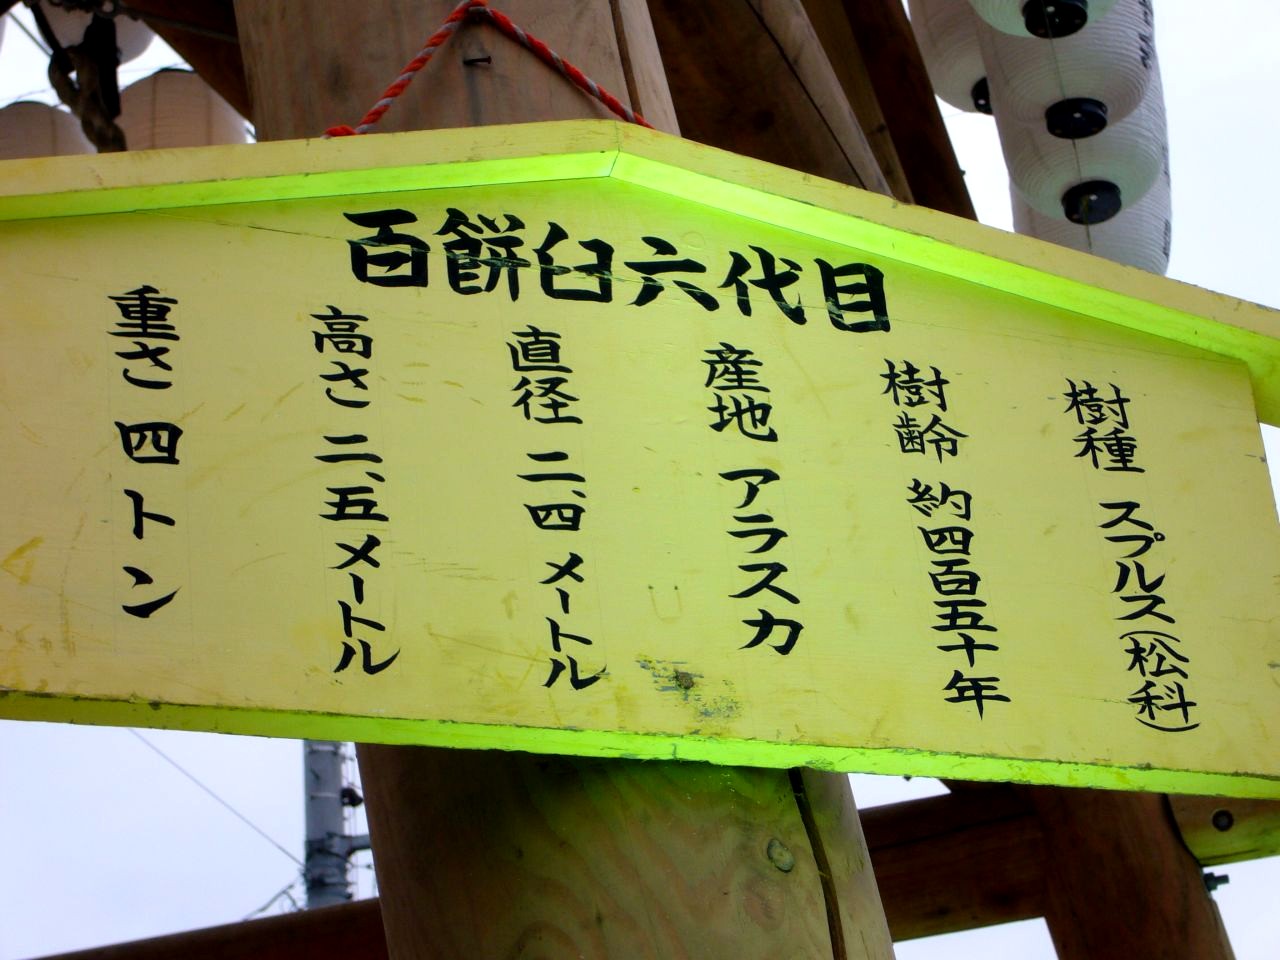 百餅臼六代目
樹種 スプルス(松科)
樹齢 約四百五十年
産地 アラスカ
直径 二、四メートル
高さ 二、五メートル
重さ 四トン